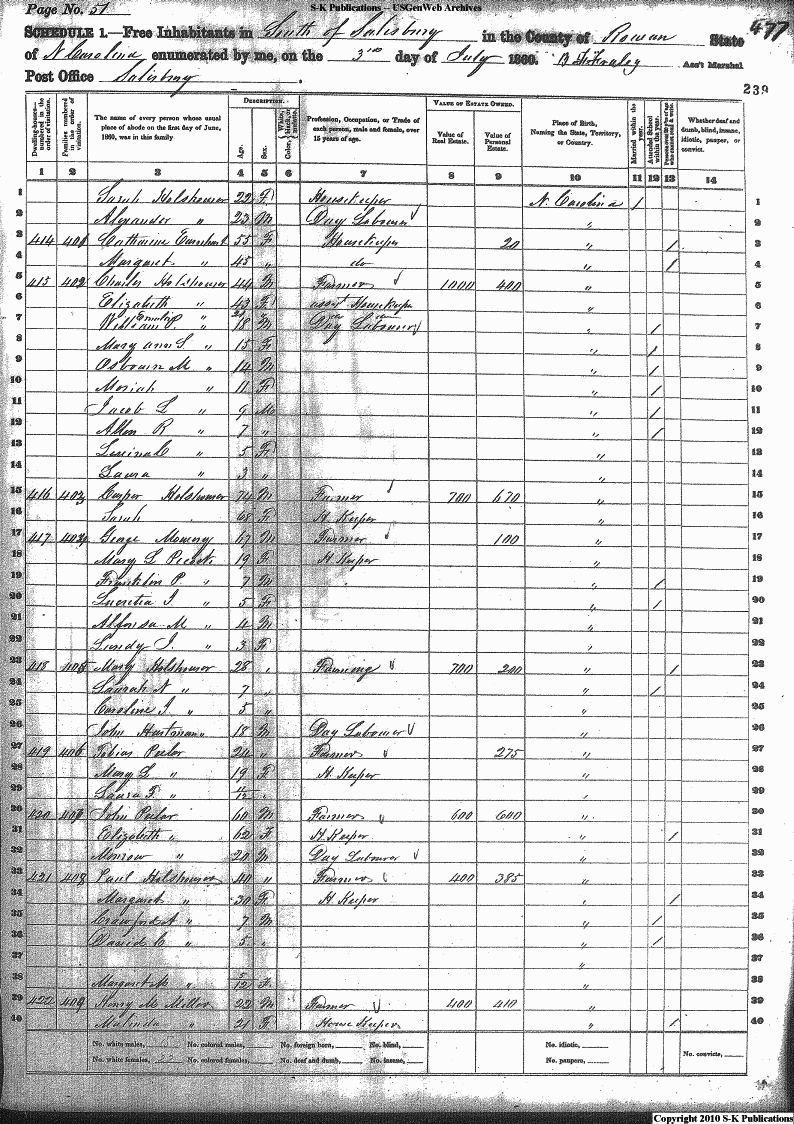 S-K Publications -- USGenWeb Archives
Page No. 51
477
SCHEDULE 1.—Free Inhabitants in South of Salisbury in the County of Rowan State
of N Carolina enumerated by me, on the 3rd day of July 1860. Ass't Marshal
Post Office Salisbury.
239
Dwelling-houses—numbered in the order of visitation.
Families numbered in the order of visitation.
The name of every person whose usual place of abode on the first day of June, 1860, was in this family
DESCRIPTION.
Age.
Sex.
Color, White, black, or mulatto.
Profession, Occupation, or Trade of each person, male and female, over 15 years of age.
VALUE OF ESTATE OWNED.
Value of Real Estate.
Value of Personal Estate.
Place of Birth, Naming the State, Territory, or Country.
Married within the year.
Attended School within the year.
Persons over 20 y'rs of age who cannot read & write.
Whether deaf and dumb, blind, insane, idiotic, pauper, or convict.
1 2 3 4 5 6 7 8 9 10 11 12 13 14
1 Sarah Holshouser 22 F Housekeeper N. Carolina / 1
2 Alexander " 23 M Day Labourer " 2
3 414 401 Catharine Earnhart 55 F Housekeeper 20 " / 3
4 Margaret " 45 " do " / 4
5 415 402 Charles Holshouser 44 M Farmer 1000 400 " 5
6 Elizabeth " 43 F assnt Housekeeper " 6
7 William " 18 M Day Labourer " / 7
8 Mary Ann S. " 15 F " / 8
9 Osbourn M " 14 M " / 9
10 Moriah " 11 F " / 10
11 Jacob L " 9 M " / 11
12 Allen R " 7 " " / 12
13 " 5 F " 13
14 Laura " 3 " " 14
15 416 403 Casper Holshouser 74 M Farmer 700 670 " 15
16 Sarah 68 F H Keeper " 16
17 417 404 George Mowery 67 M Farmer 100 " 17
18 Mary L 19 F H Keeper " 18
19 Franklin P. " 7 M " / 19
20 Lucretia J. " 5 F " / 20
21 Alfonso M " 4 M " 21
22 Lundy J. " 3 F " 22
23 418 405 Mary Holshouser 28 " Farming 700 200 " / 23
24 Laurah A " 7 " " / 24
25 Caroline J " 5 " " 25
26 John Hartman " 18 M Day Labourer " 26
27 419 406 Tobias Peeler 24 " Farmer 275 " 27
28 Mary L " 19 F H Keeper " 28
29 Laura F. " 4/12 " " 29
30 420 407 John Peeler 60 M Farmer 600 600 " 30
31 Elizabeth " 62 F H Keeper " / 31
32 Monroe " 20 M Day Labourer " 32
33 421 408 Paul Holshouser 40 " Farmer 400 385 " 33
34 Margaret " 30 F H Keeper " / 34
35 Crawford A " 7 M " / 35
36 David C " 5 " " / 36
37 " 37
38 Margaret M " 5/12 F " 38
39 422 409 Henry M Miller 22 M Farmer 400 410 " 39
40 Malinda " 21 F House Keeper " / 40
No. white males, No. colored males, No. foreign born, No. blind, No. idiotic,
No. white females, No. colored females, No. deaf and dumb, No. insane, No. paupers, No. convicts,
Copyright 2010 S-K Publications